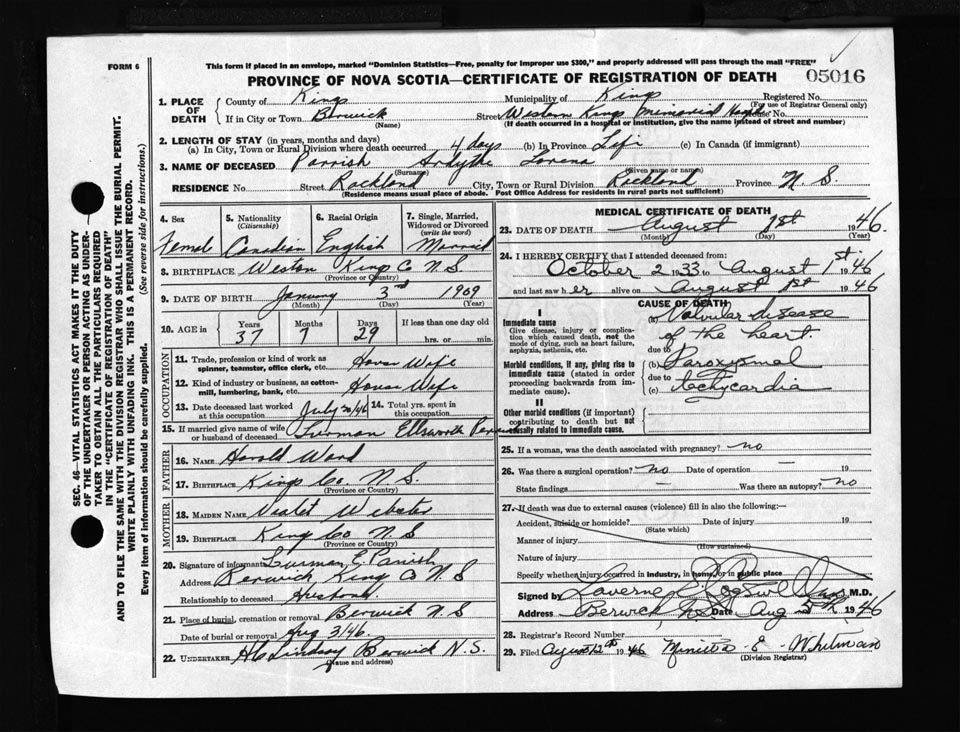 FORM 6
This form if placed in an envelope, marked "Dominion Statistics—Free, penalty for improper use $300," and properly addressed will pass through the mail "FREE"
PROVINCE OF NOVA SCOTIA—CERTIFICATE OF REGISTRATION OF DEATH 05016
1. PLACE OF DEATH County of Kings Municipality of Kings Registered No.
(For use of Registrar General only)
If in City or Town Berwick Street Western Kings Memorial House No.
(Name) (If death occurred in a hospital or institution, give the name instead of street and number)
2. LENGTH OF STAY (in years, months and days)
(a) In City, Town or Rural Division where death occurred 4 days (b) In Province Life (c) In Canada (if immigrant)
3. NAME OF DECEASED Parrish Ardythe Lorena
(Surname) (Given name or names)
RESIDENCE No. Street Rockland City, Town or Rural Division Rockland Province N. S.
(Residence means usual place of abode. Post Office Address for residents in rural parts not sufficient)
4. Sex
Femal
5. Nationality
(Citizenship)
Canadian
6. Racial Origin
English
7. Single, Married, Widowed or Divorced
(write the word)
Married
8. BIRTHPLACE Weston Kings Co N.S.
(Province or Country)
9. DATE OF BIRTH January 3rd 1909
(Month) (Day) (Year)
10. AGE in Years Months Days If less than one day old
37 7 29 hrs. or min.
OCCUPATION
11. Trade, profession or kind of work as spinner, teamster, office clerk, etc. House Wife
12. Kind of industry or business, as cotton-mill, lumbering, bank, etc. House Wife
13. Date deceased last worked at this occupation July 20/46 14. Total yrs. spent in this occupation
15. If married give name of wife or husband of deceased Lurman Ellsworth
FATHER
16. NAME Harold Ward
17. BIRTHPLACE Kings Co. N. S.
(Province or Country)
MOTHER
18. MAIDEN NAME Violet Webster
19. BIRTHPLACE King Co N S
(Province or Country)
20. Signature of informant Lurman E. Parrish
Address Berwick King Co N S
Relationship to deceased Husband
21. Place of burial, cremation or removal Berwick N S
Date of burial or removal Aug 3/46.
22. UNDERTAKER Lindsay Berwick N.S.
(Name and address)
MEDICAL CERTIFICATE OF DEATH
23. DATE OF DEATH August 1st 1946.
(Month) (Day) (Year)
24. I HEREBY CERTIFY that I attended deceased from:
October 2 1933 to August 1st 1946
and last saw her alive on August 1st 1946
CAUSE OF DEATH
I
Immediate cause
Give disease, injury or complication which caused death, not the mode of dying, such as heart failure, asphyxia, asthenia, etc.
(a) Valvular disease
of the heart.
due to
Morbid conditions, if any, giving rise to immediate cause (stated in order proceeding backwards from immediate cause).
(b) Paroxysmal
due to
(c) techycardia
II
Other morbid conditions (if important) contributing to death but not causally related to immediate cause.
25. If a woman, was the death associated with pregnancy? no
26. Was there a surgical operation? no Date of operation — 19
State findings — Was there an autopsy? no
27. If death was due to external causes (violence) fill in also the following:—
Accident, suicide or homicide? Date of injury 19
(State which)
Manner of injury
(How sustained)
Nature of injury
Specify whether injury occurred in industry, in home, or in public place
Signed by Laverne M.D.
Address Berwick N.S. Date Aug 5th 1946
28. Registrar's Record Number
29. Filed August 12th 1946 E. Whitman
(Division Registrar)
SEC. 46—VITAL STATISTICS ACT MAKES IT THE DUTY
OF THE UNDERTAKER OR PERSON ACTING AS UNDERTAKER TO OBTAIN ALL THE PARTICULARS REQUIRED
IN THE "CERTIFICATE OF REGISTRATION OF DEATH"
AND TO FILE THE SAME WITH THE DIVISION REGISTRAR WHO SHALL ISSUE THE BURIAL PERMIT.
WRITE PLAINLY WITH UNFADING INK. THIS IS A PERMANENT RECORD.
Every item of information should be carefully supplied. (See reverse side for instructions.)